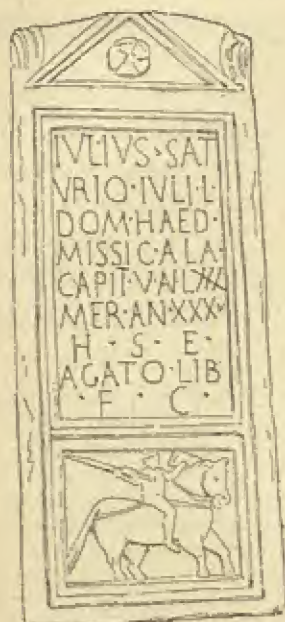 IVLIVS·SAT
VRIO·IVLI·L·
DOM·HAED·
MISSIC·ALA·
CAPIT·V·A·LXX
MER·AN·XXX·
H · S · E ·
AGATO·LIB
· F · C ·